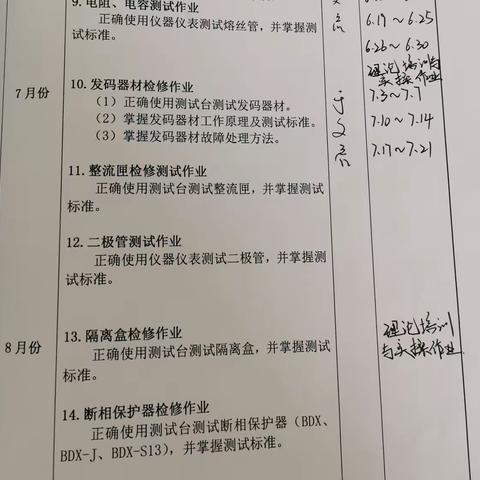 9. 电阻、电容测试作业
正确使用仪器仪表测试熔丝管，并掌握测
试标准。
6.19～6.25
6.26～6.30
理论培训与
实操作业
7月份
10. 发码器材检修作业
（1）正确使用测试台测试发码器材。
（2）掌握发码器材工作原理及测试标准。
（3）掌握发码器材故障处理方法。
于
文
亮
7.3～7.7
7.10～7.14
7.17～7.21
11. 整流匣检修测试作业
正确使用测试台测试整流匣，并掌握测试
标准。
12. 二极管测试作业
正确使用仪器仪表测试二极管，并掌握测
试标准。
8月份
13. 隔离盒检修作业
正确使用测试台测试隔离盒，并掌握测试
标准。
理论培训
与实操作业
14. 断相保护器检修作业
正确使用测试台测试断相保护器（BDX、
BDX-J、BDX-S13），并掌握测试标准。